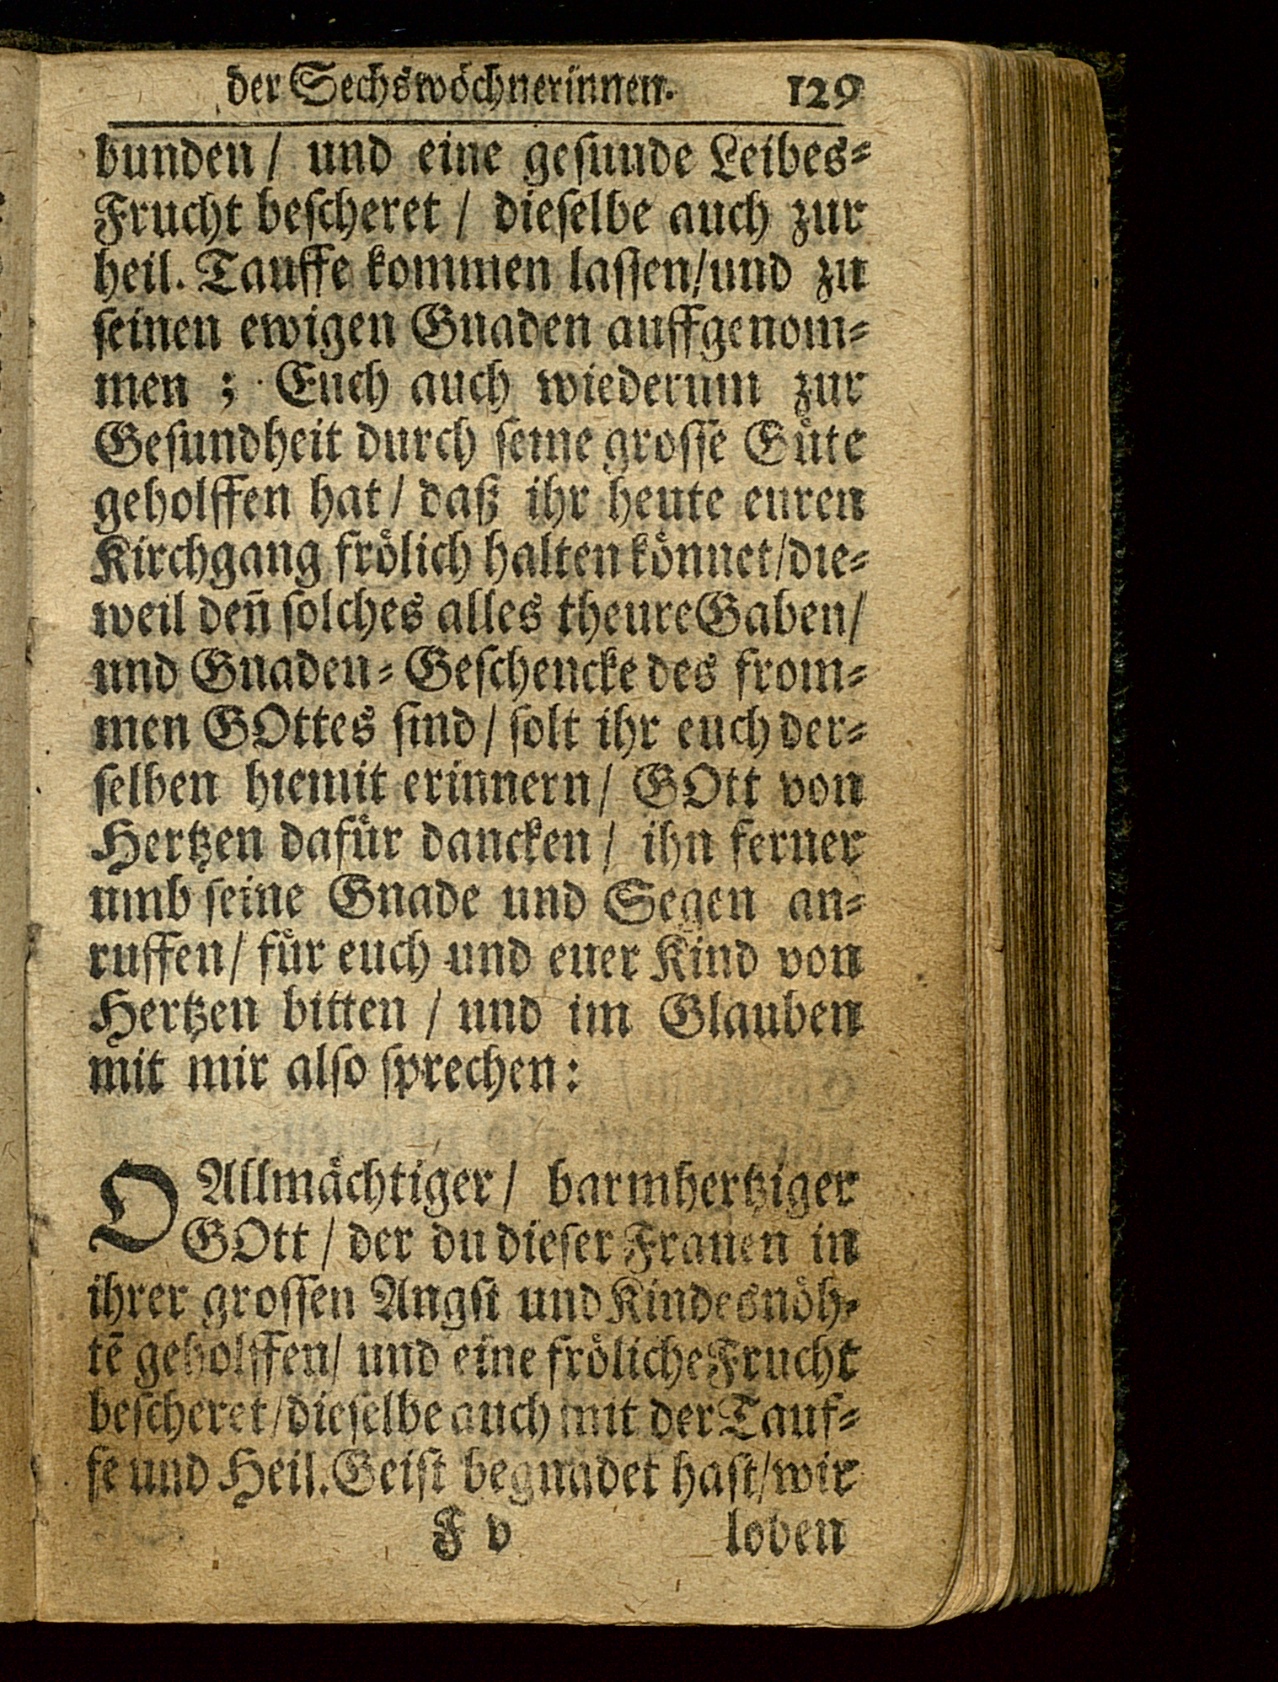 der Sechswöchnerinnen. 129
bunden / und eine gesunde Leibes-
Frucht bescheret / dieselbe auch zur
heil. Tauffe kommen lassen/und zu
seinen ewigen Gnaden auffgenom-
men ; Euch auch wiederum zur
Gesundheit durch seine grosse Güte
geholffen hat / daß ihr heute euren
Kirchgang frölich halten könnet/die-
weil deñ solches alles theure Gaben/
und Gnaden-Geschencke des from-
men GOttes sind / solt ihr euch der-
selben hiemit erinnern / GOtt von
Hertzen dafür dancken / ihn ferner
umb seine Gnade und Segen an-
ruffen / für euch und euer Kind von
Hertzen bitten / und im Glauben
mit mir also sprechen:
O Allmächtiger / barmhertziger
GOtt / der du dieser Frauen in
ihrer grossen Angst und Kindesnöh-
tē geholffen/ und eine fröliche Frucht
bescheret/dieselbe auch mit der Tauf-
fe und Heil. Geist begnadet hast/wir
F v loben